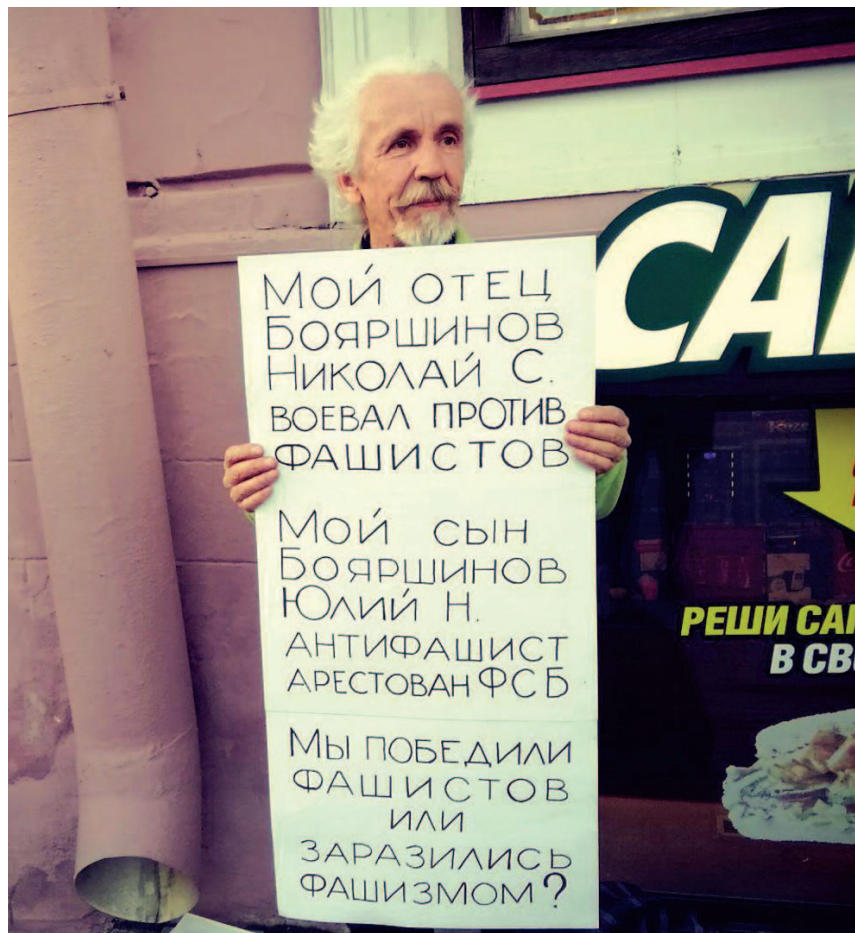 Мой отец
Бояршинов
Николай С.
воевал против
фашистов
Мой сын
Бояршинов
Юлий Н.
антифашист
арестован ФСБ
Мы победили
фашистов
или
заразились
фашизмом?
РЕШИ
В